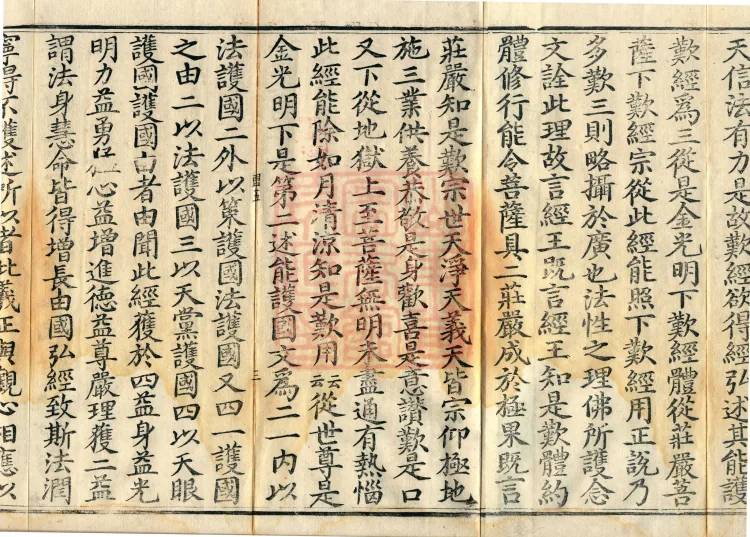 天信法有力是故歎經欲得經弘述其能護
歎經爲三從是金光明下歎經體從莊嚴菩
薩下歎經宗從此經能照下歎經用正說乃
多歎三則略攝於廣也法性之理佛所護念
文詮此理故言經王既言經王知是歎體約
體修行能令菩薩具二莊嚴成於極果既言
莊嚴知是歎宗世天淨天義天皆宗仰極地
施三業供養恭敬是身歡喜是意讚歎是口
又下從地獄上至菩薩無明未盡通有熱惱
此經能除如月清涼知是歎用云云從世尊是
金光明下是第二述能護國文爲二一內以
盟五 三
法護國二外以策護國法護國又四一護國
之由二以法護國三以天黨護國四以天眼
護國護國由者由聞此經獲於四益身益光
明力益勇心益增進德益尊嚴理獲二益
謂法身慧命皆得增長由國弘經致斯法潤
寧得不護述所以者此義正與觀心相應以